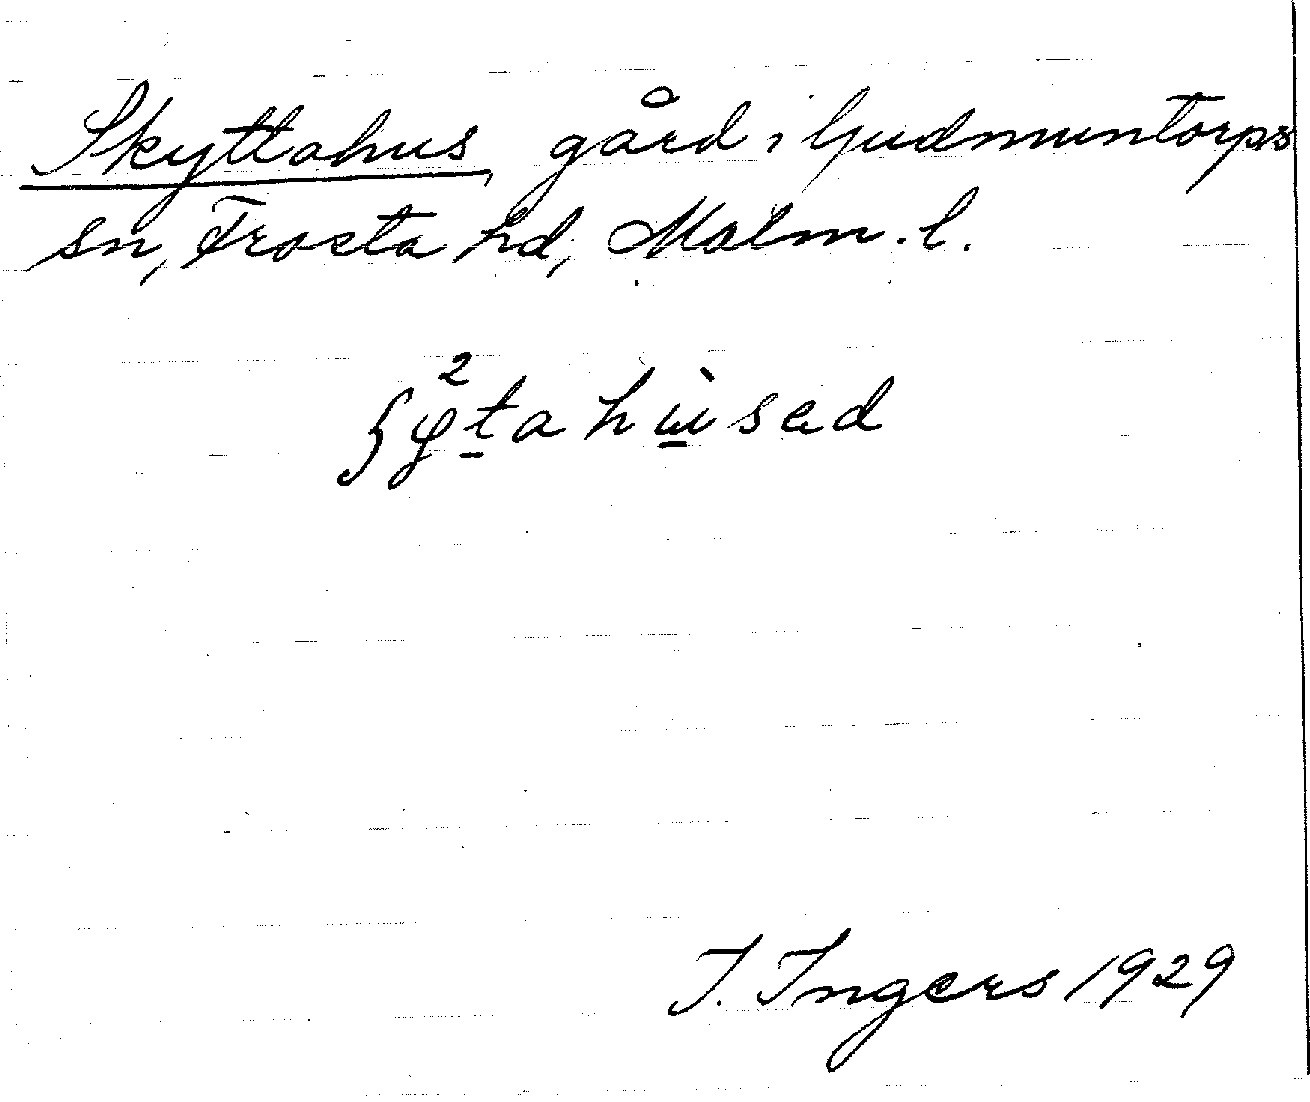 Skyttahus, gård i Gudmuntorps
sn, Frosta hd, Malm. l.
J. Ingers 1929